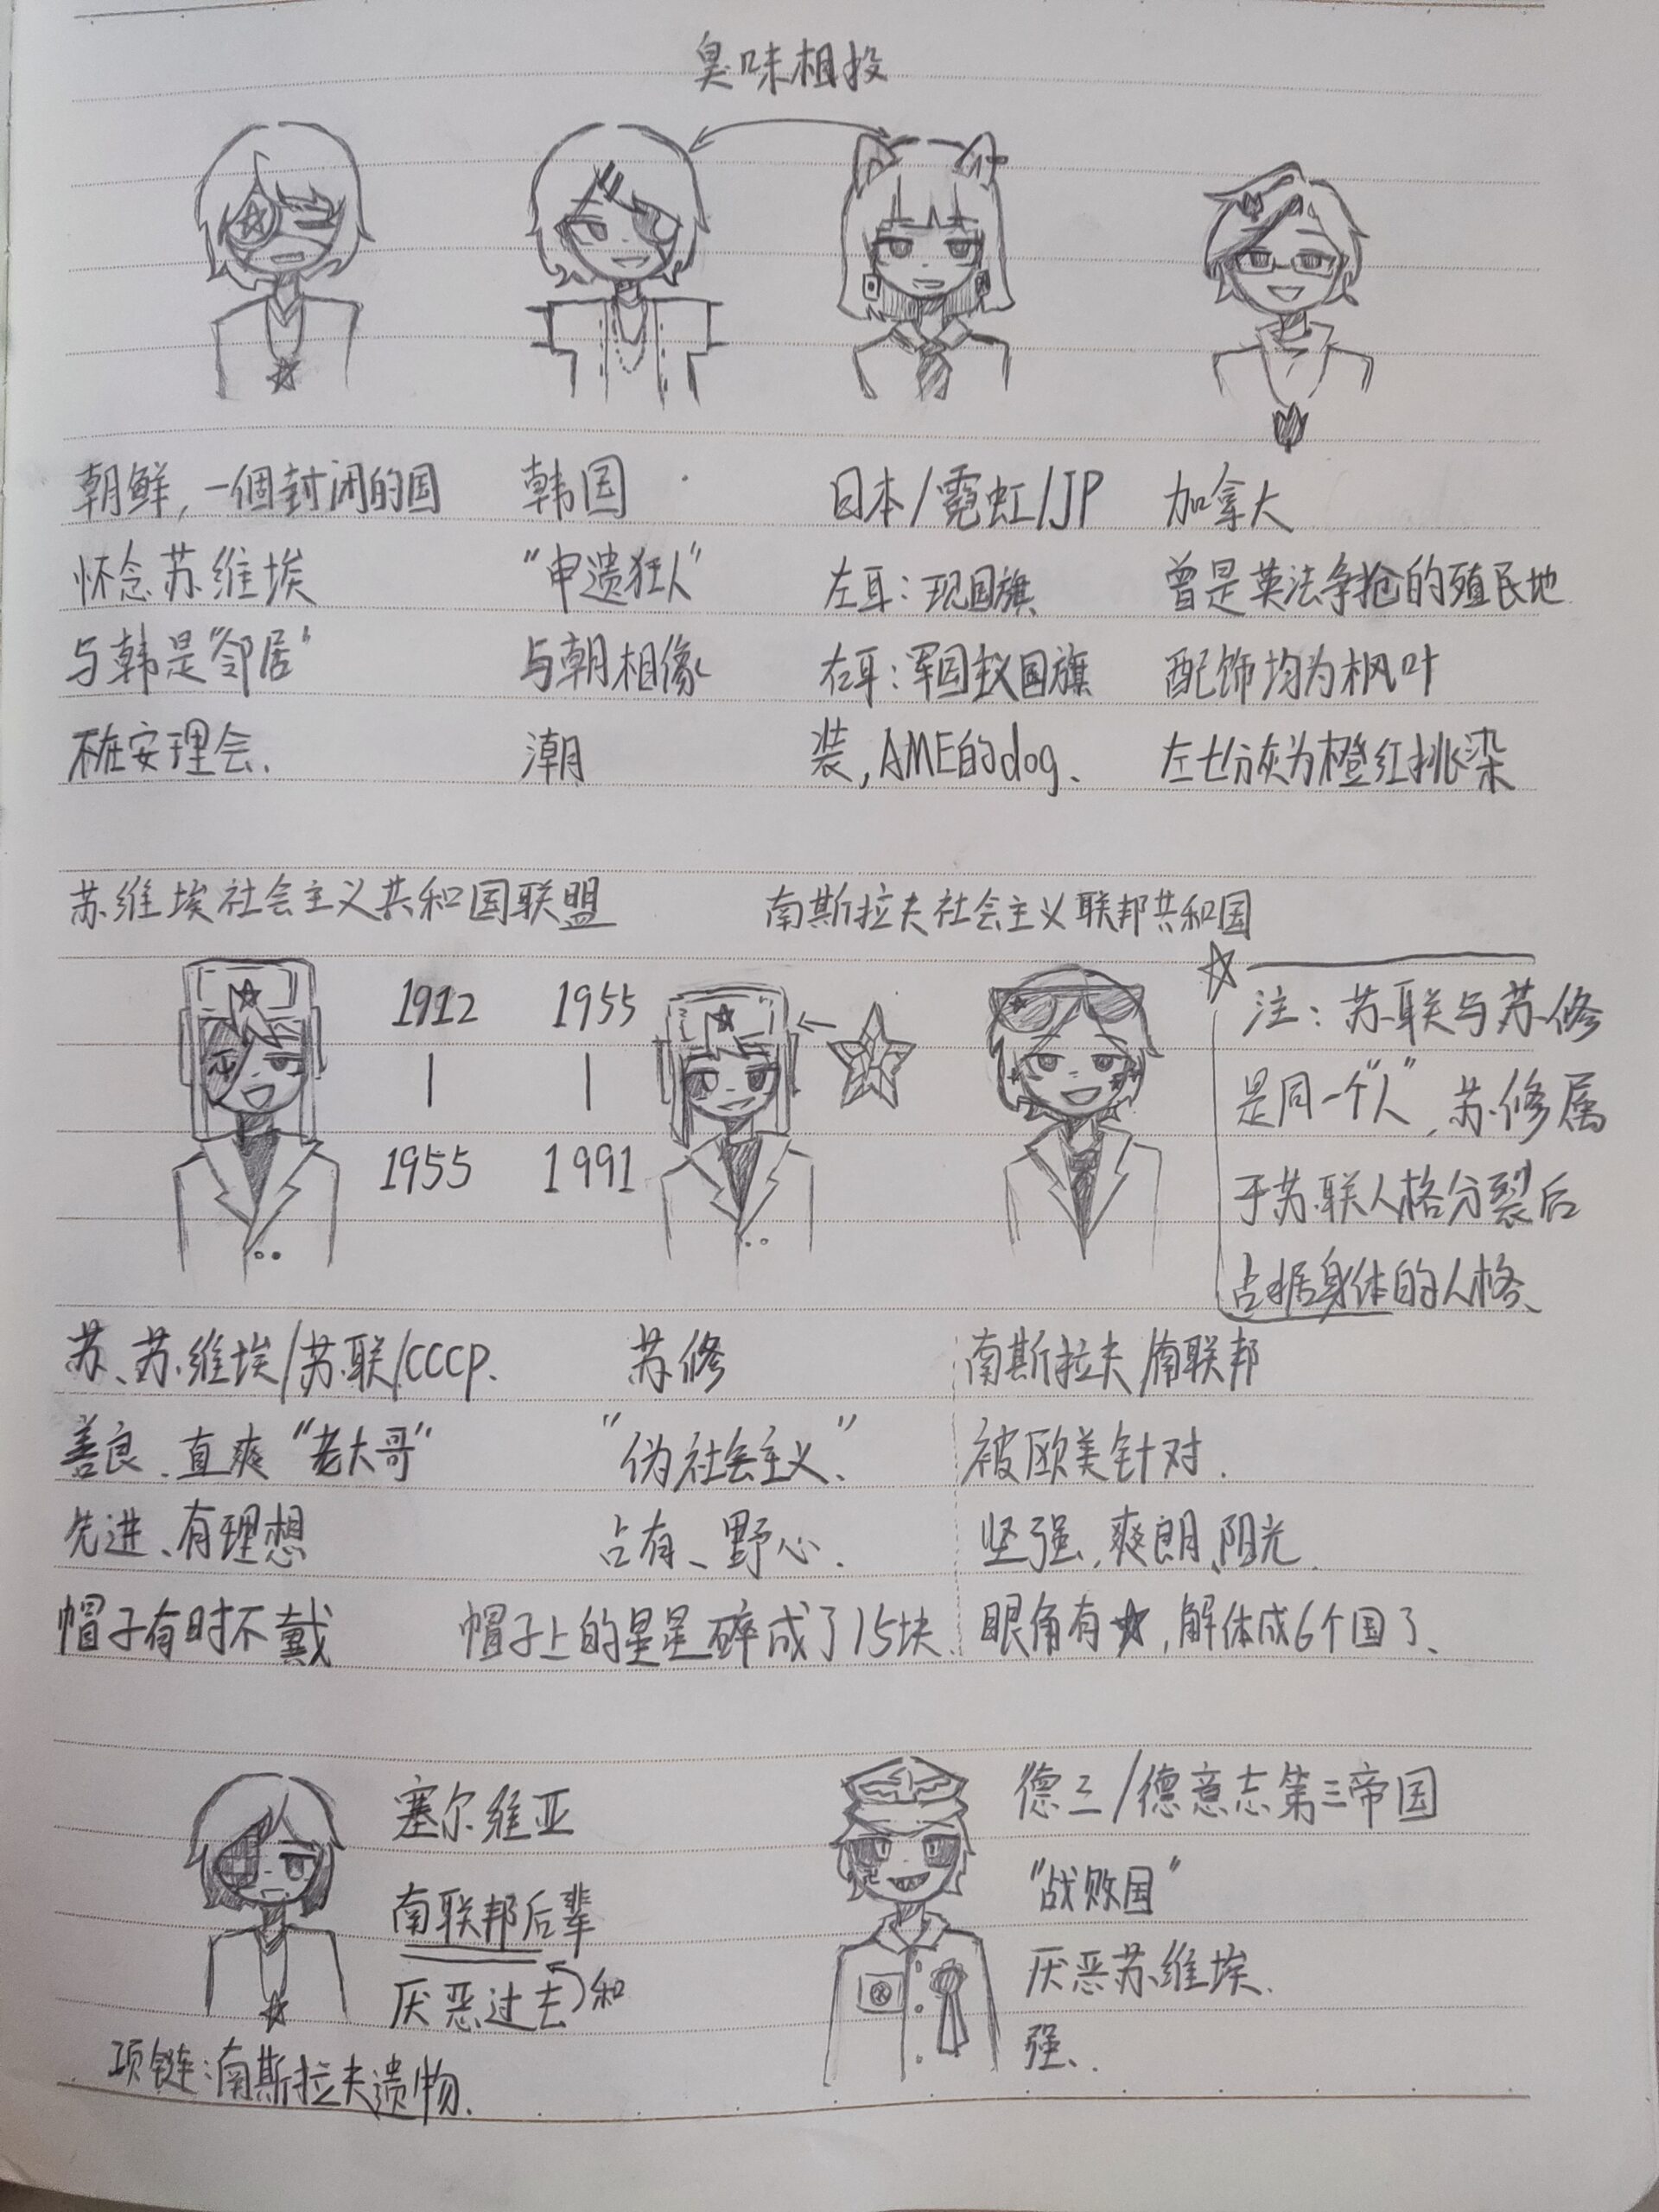 臭味相投
朝鲜,一個封闭的国
怀念苏维埃
与韩是"邻居"
不在安理会.
韩国
"申遗狂人"
与朝相像
潮
日本/霓虹/JP
左耳:现国旗
右耳:军国主义国旗
装,AME的dog、
加拿大
曾是英法争抢的殖民地
配饰均为枫叶
左七分灰为橙红挑染
苏维埃社会主义共和国联盟
南斯拉夫社会主义联邦共和国
1912
|
1955
1955
|
1991
注:苏联与苏修
是同一个"人",苏修属
于苏联人格分裂后
占据身体的人格、
苏、苏维埃/苏联/CCCP、
善良、直爽"老大哥"
先进、有理想
帽子有时不戴
苏修
"伪社会主义"、
占有、野心.
帽子上的星星碎成了15块、
南斯拉夫/南联邦
被欧美针对.
坚强,爽朗、阳光.
眼角有★,解体成6个国了、
塞尔维亚
南联邦后辈
厌恶过去 和
项链:南斯拉夫遗物.
德三/德意志第三帝国
"战败国"
厌恶苏维埃.
强、.